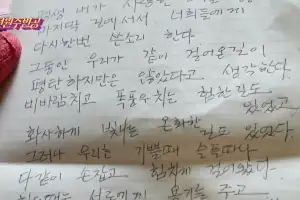 너희들에게
다시 한번 쓴소리 한다.
그동안 우리가 같이 걸어온 길이
평탄하지만은 않았다고 생각한다.
비바람치고 폭풍우치는 험한 길도
있었고
화사하게 빛나는 온화한
길도 있었다.
그러나 우리는 기쁠때 슬플때나
다같이 손잡고 힘차게 걸어왔다.
서로에게 용기를 주고